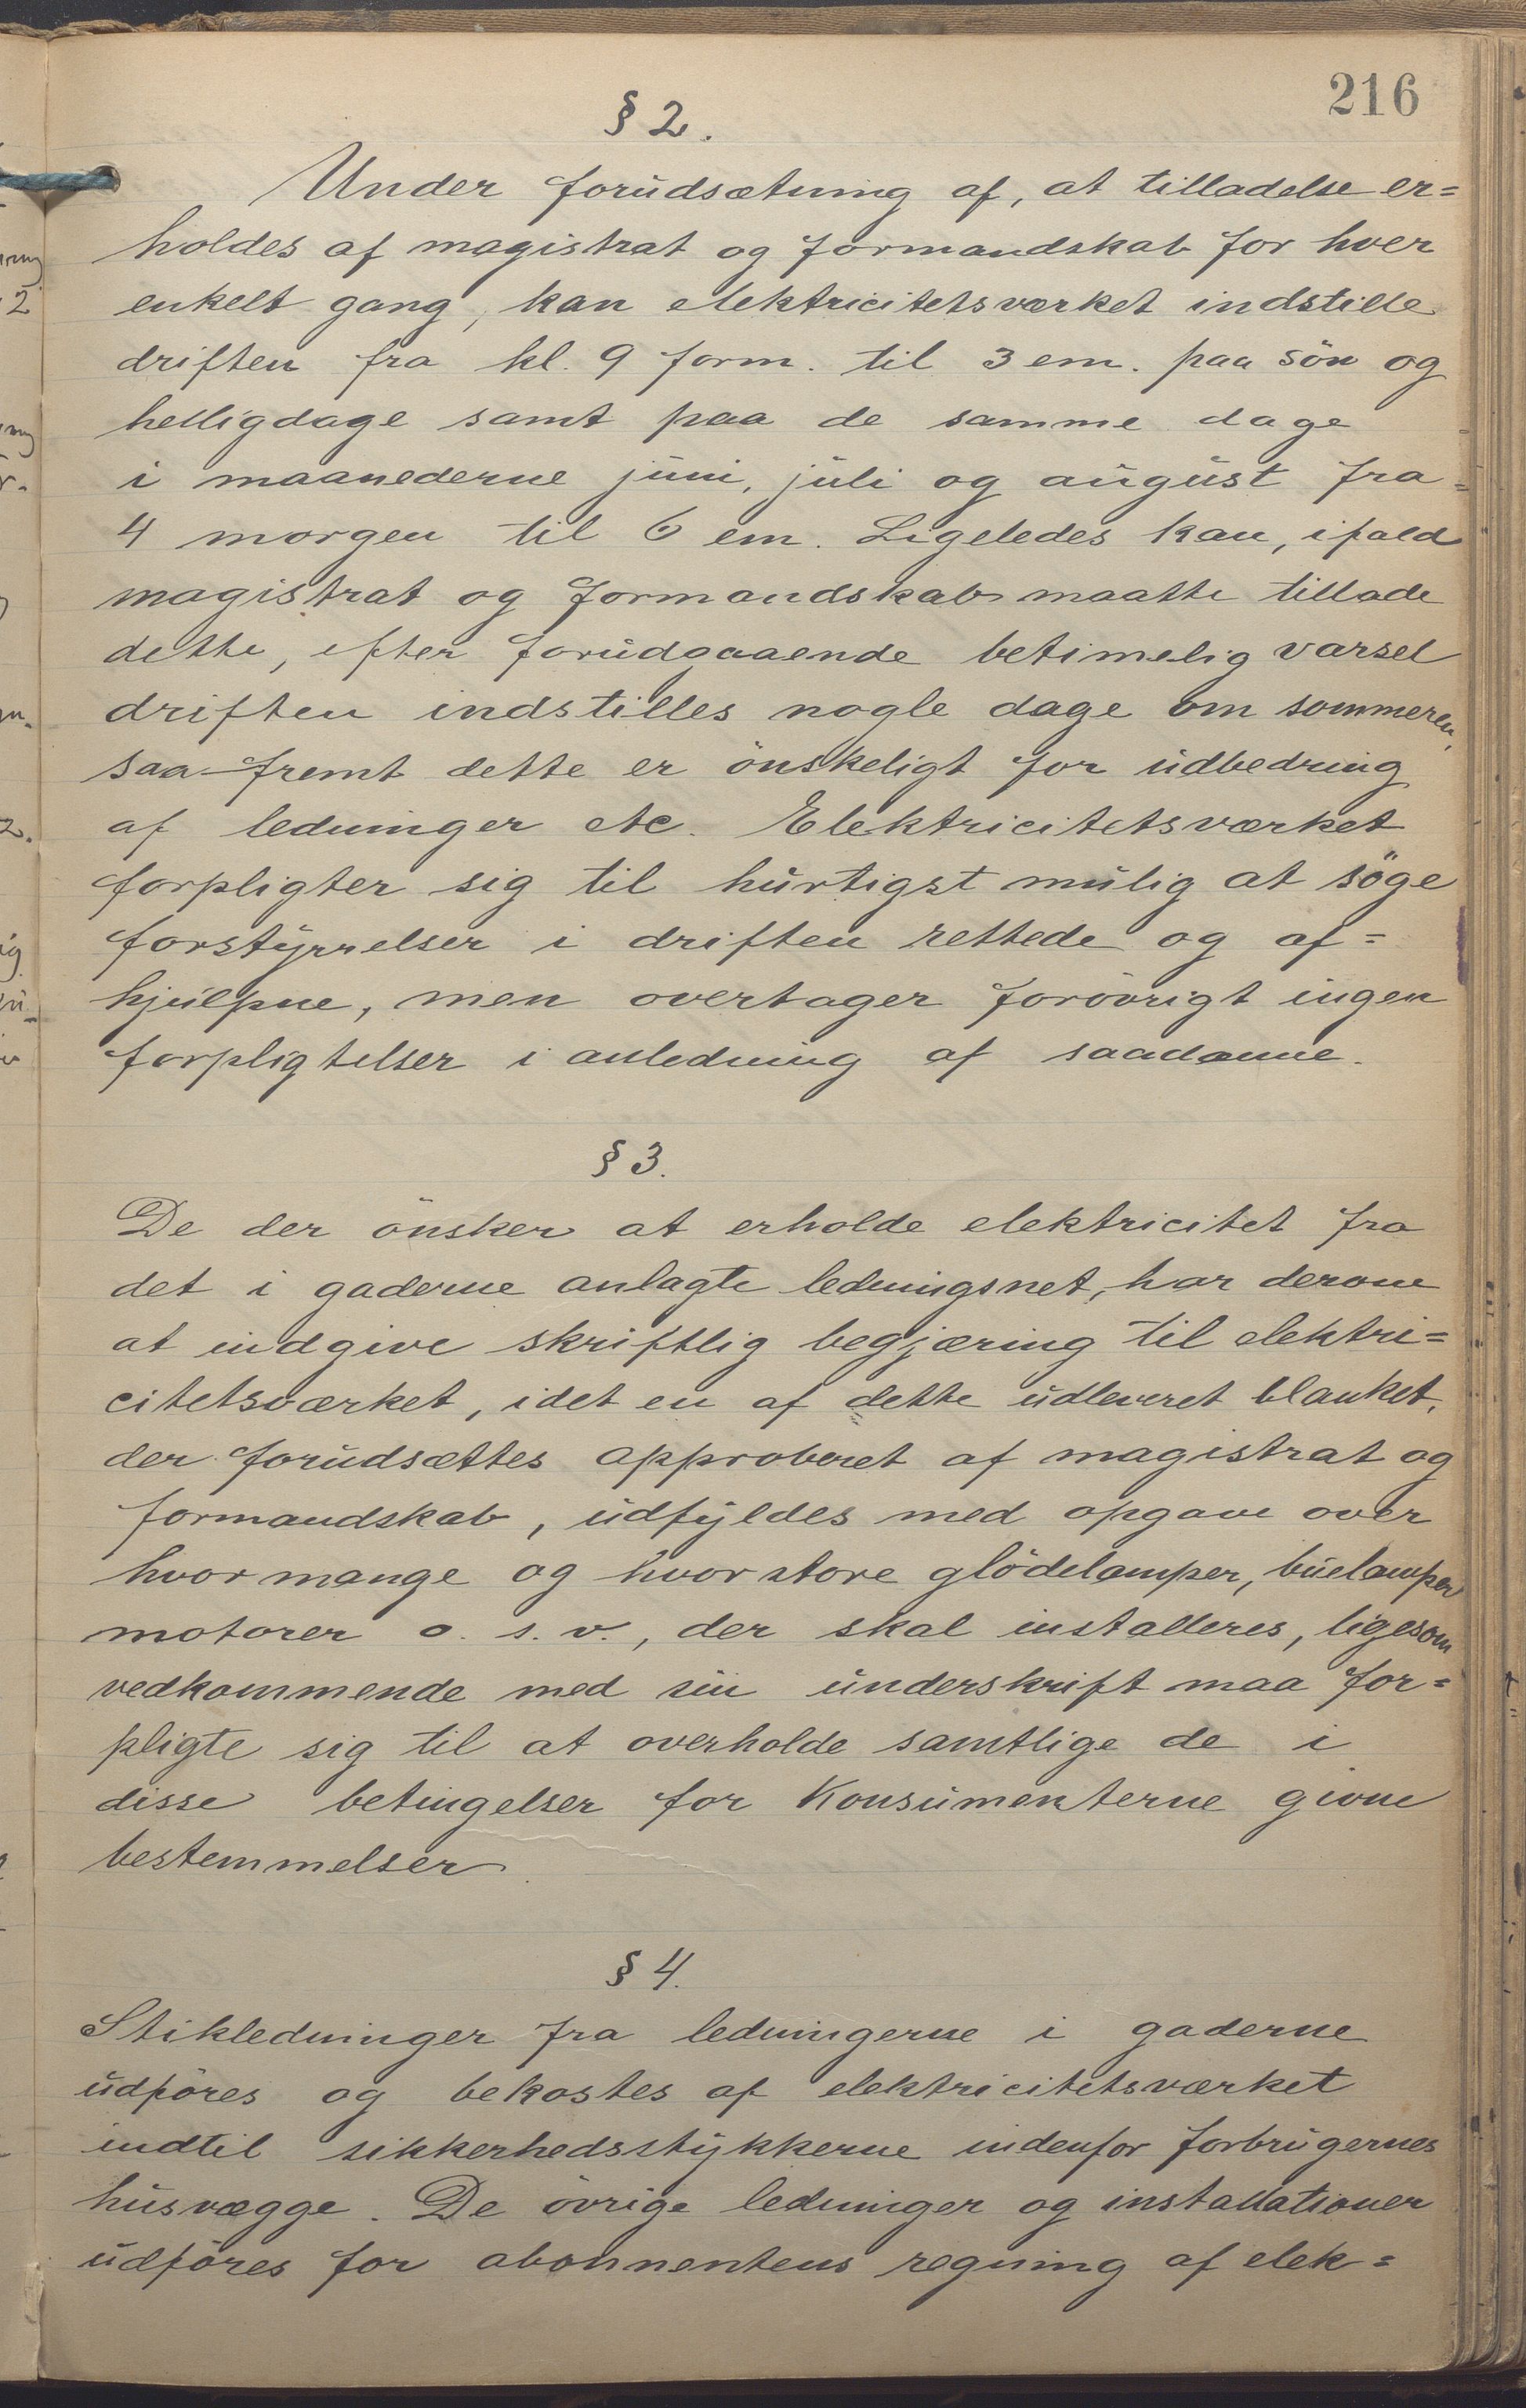 216
§ 2.
Under forudsætning af, at tilladelse er=
holdes af magistrat og formandskab for hver
enkelt gang, kan elektricitetsværket indstille
driften fra kl. 9 form. til 3 em. paa sön og
helligdage samt paa de samme dage
i maanederne juni, juli og august fra
4 morgen til 6 em. Ligeledes kan, ifald
magistrat og formandskab maatte tillade
dette, efter forudgaaende betimelig varsel
driften indstilles nogle dage om sommeren,
saafremt dette er önskeligt for udbedring
af ledninger etc. Elektricitetsværket
forpligter sig til hurtigst mulig at söge
forstyrrelser i driften rettede og af=
hjulpne, men overtager forövrigt ingen
forpligtelser i anledning af saadanne.
§ 3.
De der önsker at erholde elektricitet fra
det i gaderne anlagte ledningsnet, har derom
at indgive skriftlig begjæring til elektri=
citetsværket, idet en af dette udleveret blanket,
der forudsættes approberet af magistrat og
formandskab, udfyldes med opgave over
hvor mange og hvor store glödelamper, buelamper
motorer o. s. v., der skal installeres, ligesom
vedkommende med sin underskrift maa for=
pligte sig til at overholde samtlige de i
disse betingelser for Konsumenterne givne
bestemmelser.
§ 4.
Stikledninger fra ledningerne i gaderne
udföres og bekostes af elektricitetsværket
indtil sikkerhedsstykkerne indenfor forbrugernes
husvægge. De övrige ledninger og installationer
udföres for abonnentens regning af elek=